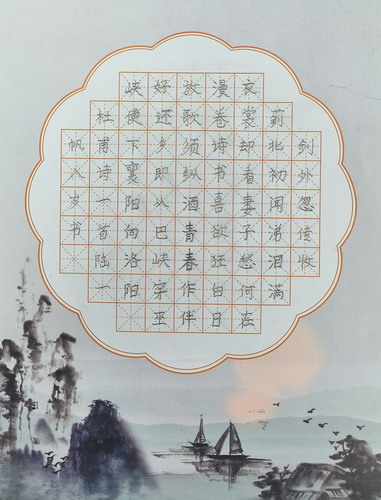 剑外忽传收
蓟北初闻涕泪满
衣裳却看妻子愁何在
漫卷诗书喜欲狂白日
放歌须纵酒青春作伴
好还乡即从巴峡穿巫
峡便下襄阳向洛阳
杜甫诗一首陆一
帆八岁书